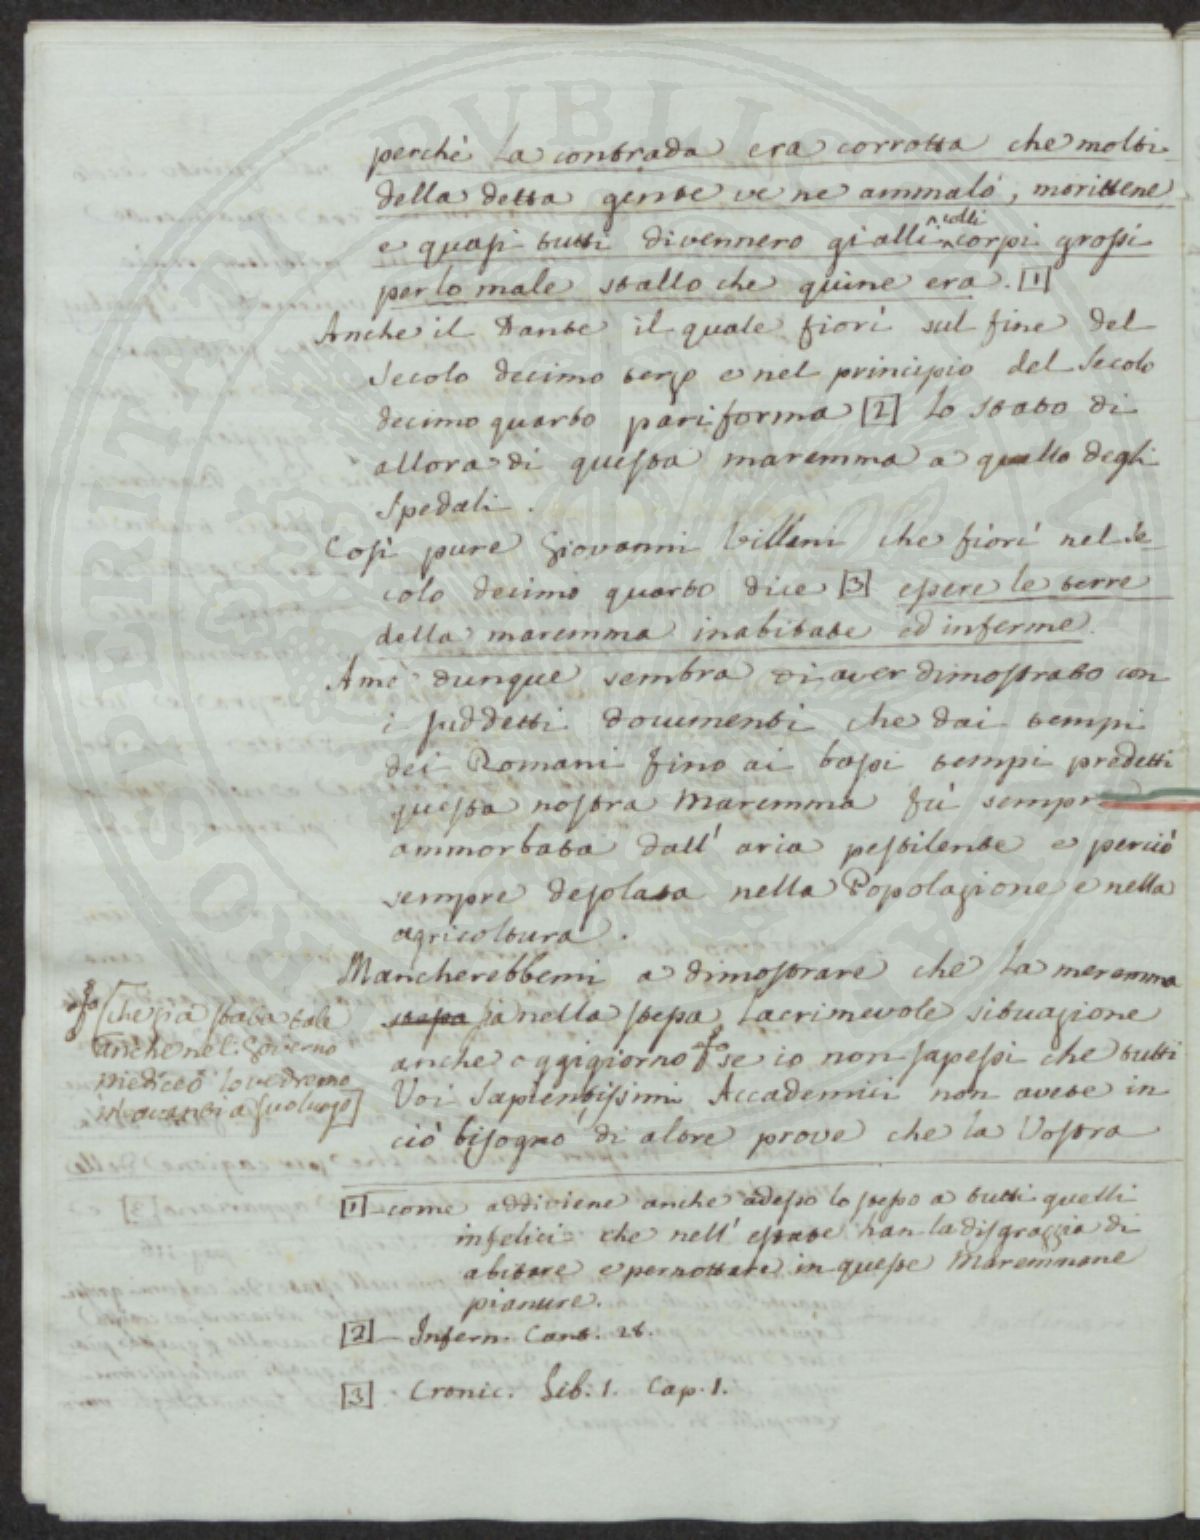 perchè la contrada era corrotta che molti
della detta gente ve ne ammalò, morittene
e quasi tutti divennero gialli ^colli corpi grossi
per lo male stallo che quine era. [1]
Anche il Dante il quale fiorì sul fine del
Secolo decimo terzo e nel principio del Secolo
decimo quarto pariforma [2] lo stato di
allora di questa maremma a quello degli
Spedali.
Così pure Giovanni Villani che fiorì nel Se-
colo decimo quarto dice [3] essere le terre
della maremma inabitate ed inferme.
A me dunque sembra di aver dimostrato con
i suddetti documenti che dai tempi
dei Romani fino ai bassi tempi predetti
questa nostra Maremma fù sempre
ammorbata dall' aria pestilente e perciò
sempre desolata nella Popolazione e nella
agricoltura.
Mancherebbemi a dimostrare che la meremma
stessa sia nella stessa lacrimevole situazione
anche oggigiorno se io non sapessi che tutti
Voi Sapientissimi Accademici non avete in
ciò bisogno di altre prove che la Vostra
[che già stata tale
anche nel Governo
Mediceo lo vedremo
in avanti a suo luogo]
[1] come addiviene anche adesso lo stesso a tutti quelli
infelici che nell' estate han la disgrazzia di
abitare e pernottare in queste Maremmane
pianure.
[2] Infern. Cant. 28.
[3] Cronic. Lib. 1. Cap. 1.
SOSPERITAT PVBLICAE